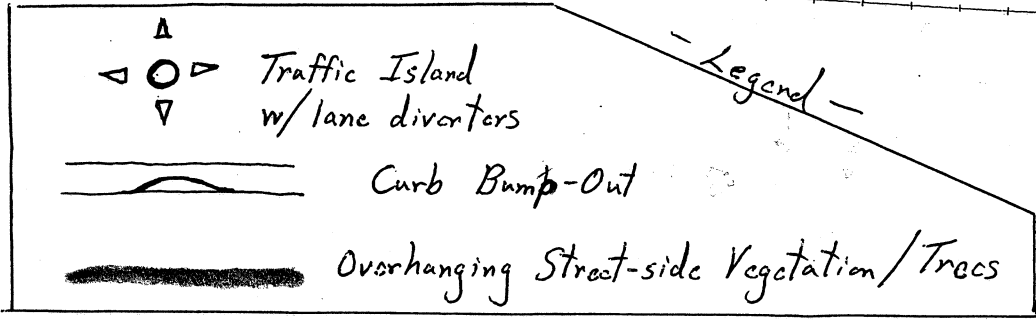 - Legend -
Traffic Island
w/ lane diverters
Curb Bump-Out
Overhanging Street-side Vegetation/Trees